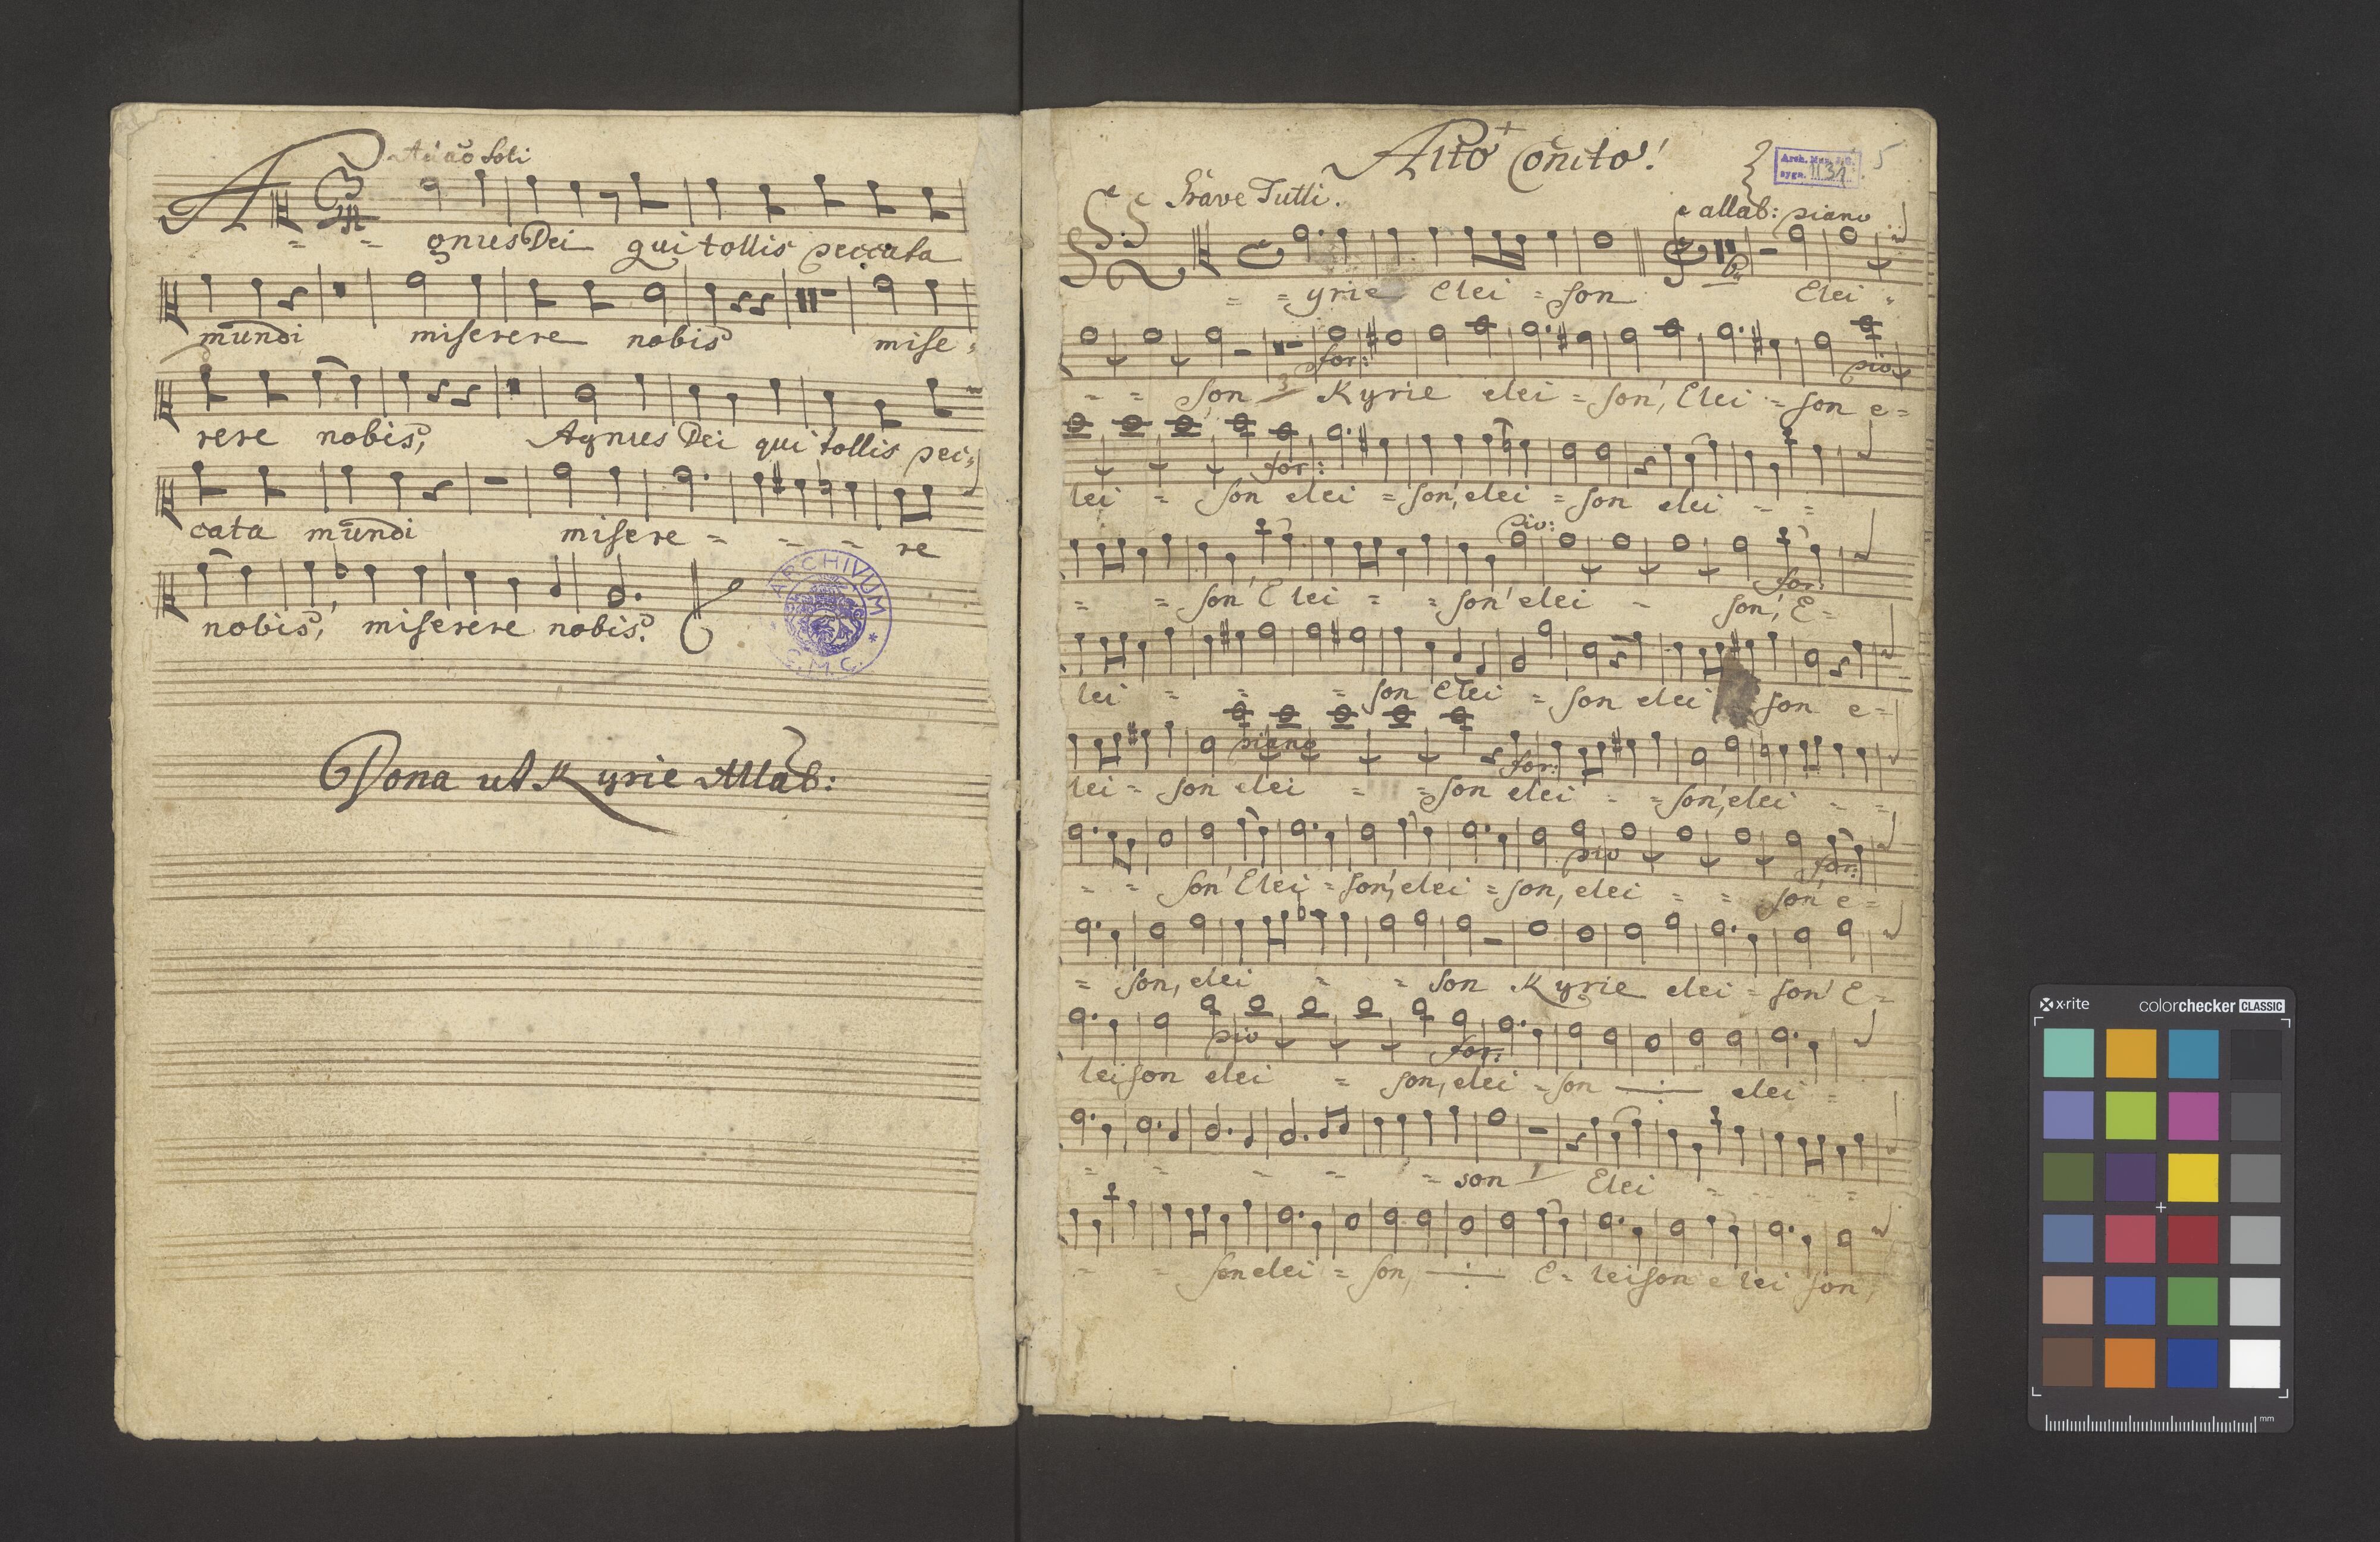 Soli
A = = gnus Dei qui tollis peccata
mundi miserere nobis mise=
rere nobis, Agnus Dei qui tollis pec=
cata mundi misere = = = re
nobis, miserere nobis.
ARCHIVUM
C. M. C.
Dona ut Kyrie Allab:
Alto Coñcto!
Arch. Muz.
sygn. II 31
5
Grave Tutti.
allab: piano
= = yrie Elei = son Elei =
for: pio
= = son 3 Kyrie elei = son, Elei = son e=
for:
lei = son elei = son, elei = son elei = =
pio: for:
= = son Elei = = son elei = son, E=
lei = = = son Elei = son elei son e=
piano for:
lei = son elei = = son elei = = son, elei = =
pio for:
= = son Elei = son, elei = son, elei = = son e=
= son, elei = = son Kyrie elei = son E=
pio for:
leison elei = son, elei = son elei =
= = = = = son 1 Elei = =
= = son elei = son, E= leison elei son,
x·rite colorchecker CLASSIC
mm